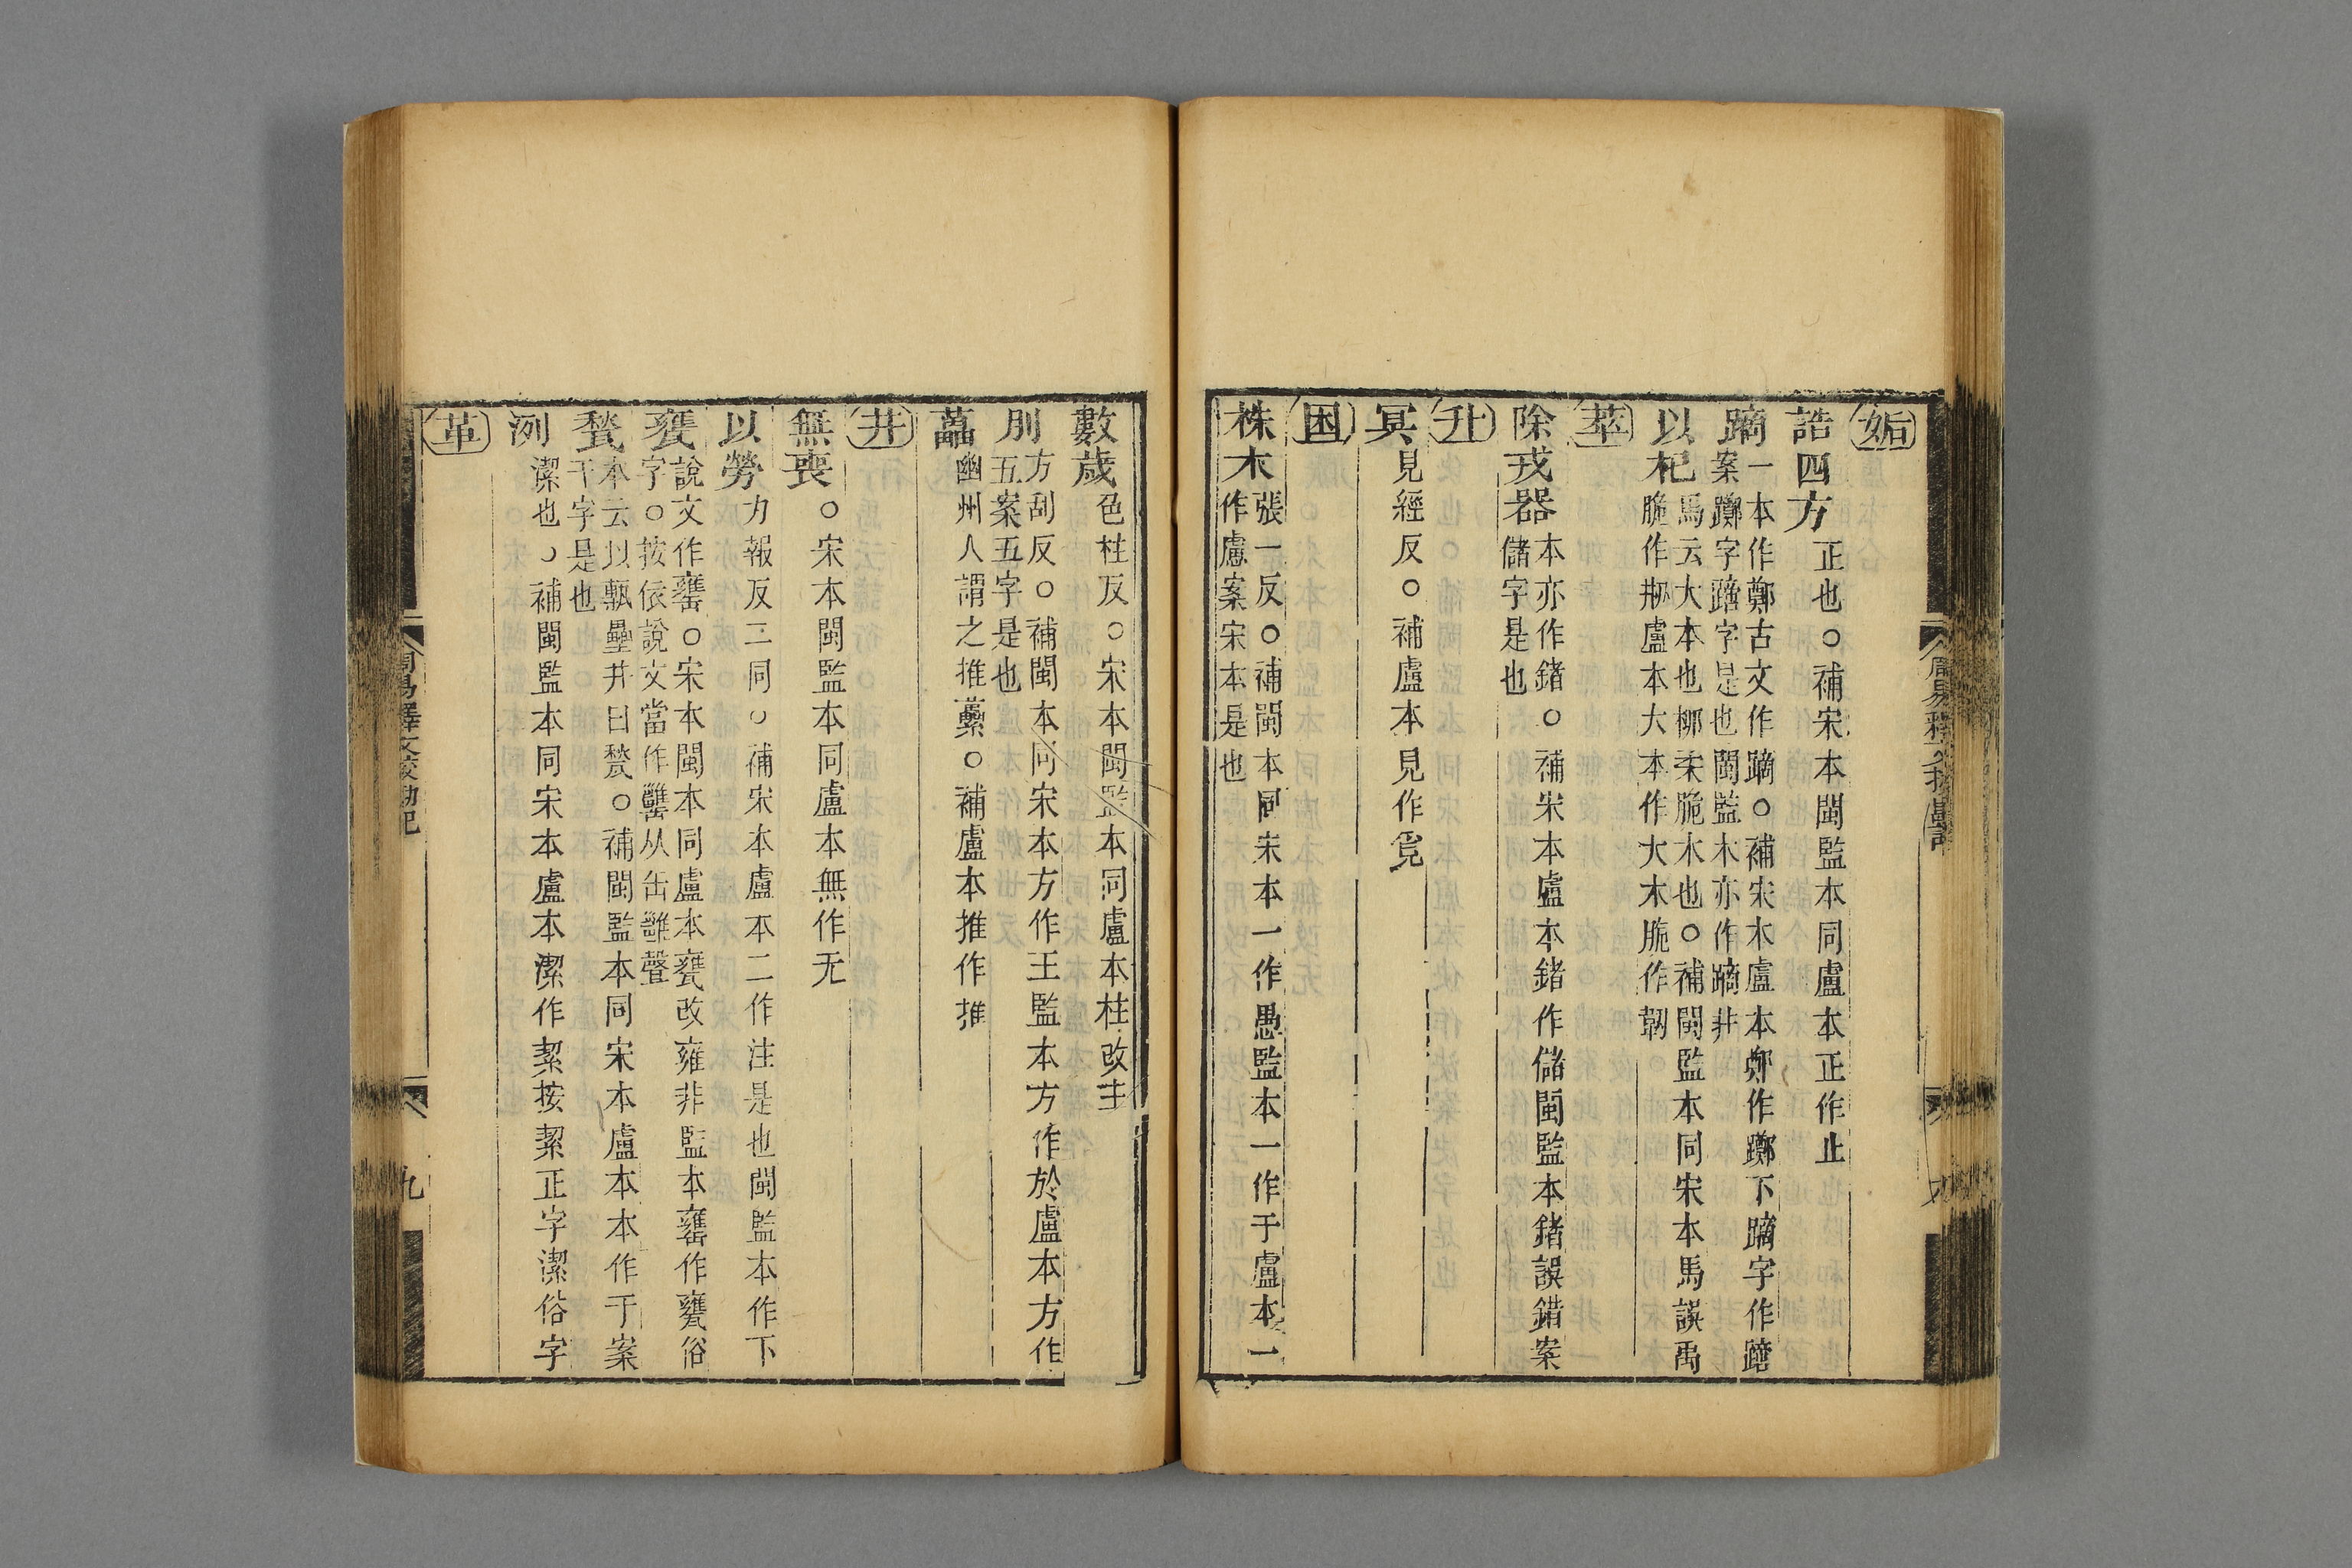 姤
誥四方正也○補宋本閩監本同盧本正作止
蹢一本作鄭古文作蹢○補宋本盧本鄭作躑下蹢字作蹢
案躑字蹢字是也閩監本亦作蹢非
以杞馬云大本也柳柔脆木也○補閩監本同宋本馬誤禹
脆作㧻盧本大本作大木脆作韌
萃
除戎器本亦作鍺○補宋本盧本鍺作儲閩監本鍺誤錯案
儲字是也
升
冥見經反○補盧本見作覓
困
株木張一反○補閩本同宋本一作愚監本一作于盧本一
作慮案宋本是也
數歲色柱反○宋本閩監本同盧本柱改主
刖方刮反○補閩本同宋本方作王監本方作於盧本方作
五案五字是也
藟幽州人謂之推虆○補盧本推作摧
井
無喪○宋本閩監本同盧本無作无
以勞力報反二同○補宋本盧本二作注是也閩監本作下
甕說文作罋○宋本閩本同盧本甕改雍非監本罋作甕俗
字○按依說文當作䧹从缶雝聲
甃本云以甎壘井曰甃○補閩監本同宋本盧本本作于案
干字是也
洌潔也○補閩監本同宋本盧本潔作絜按絜正字潔俗字
革
周易釋文挍勘記
九